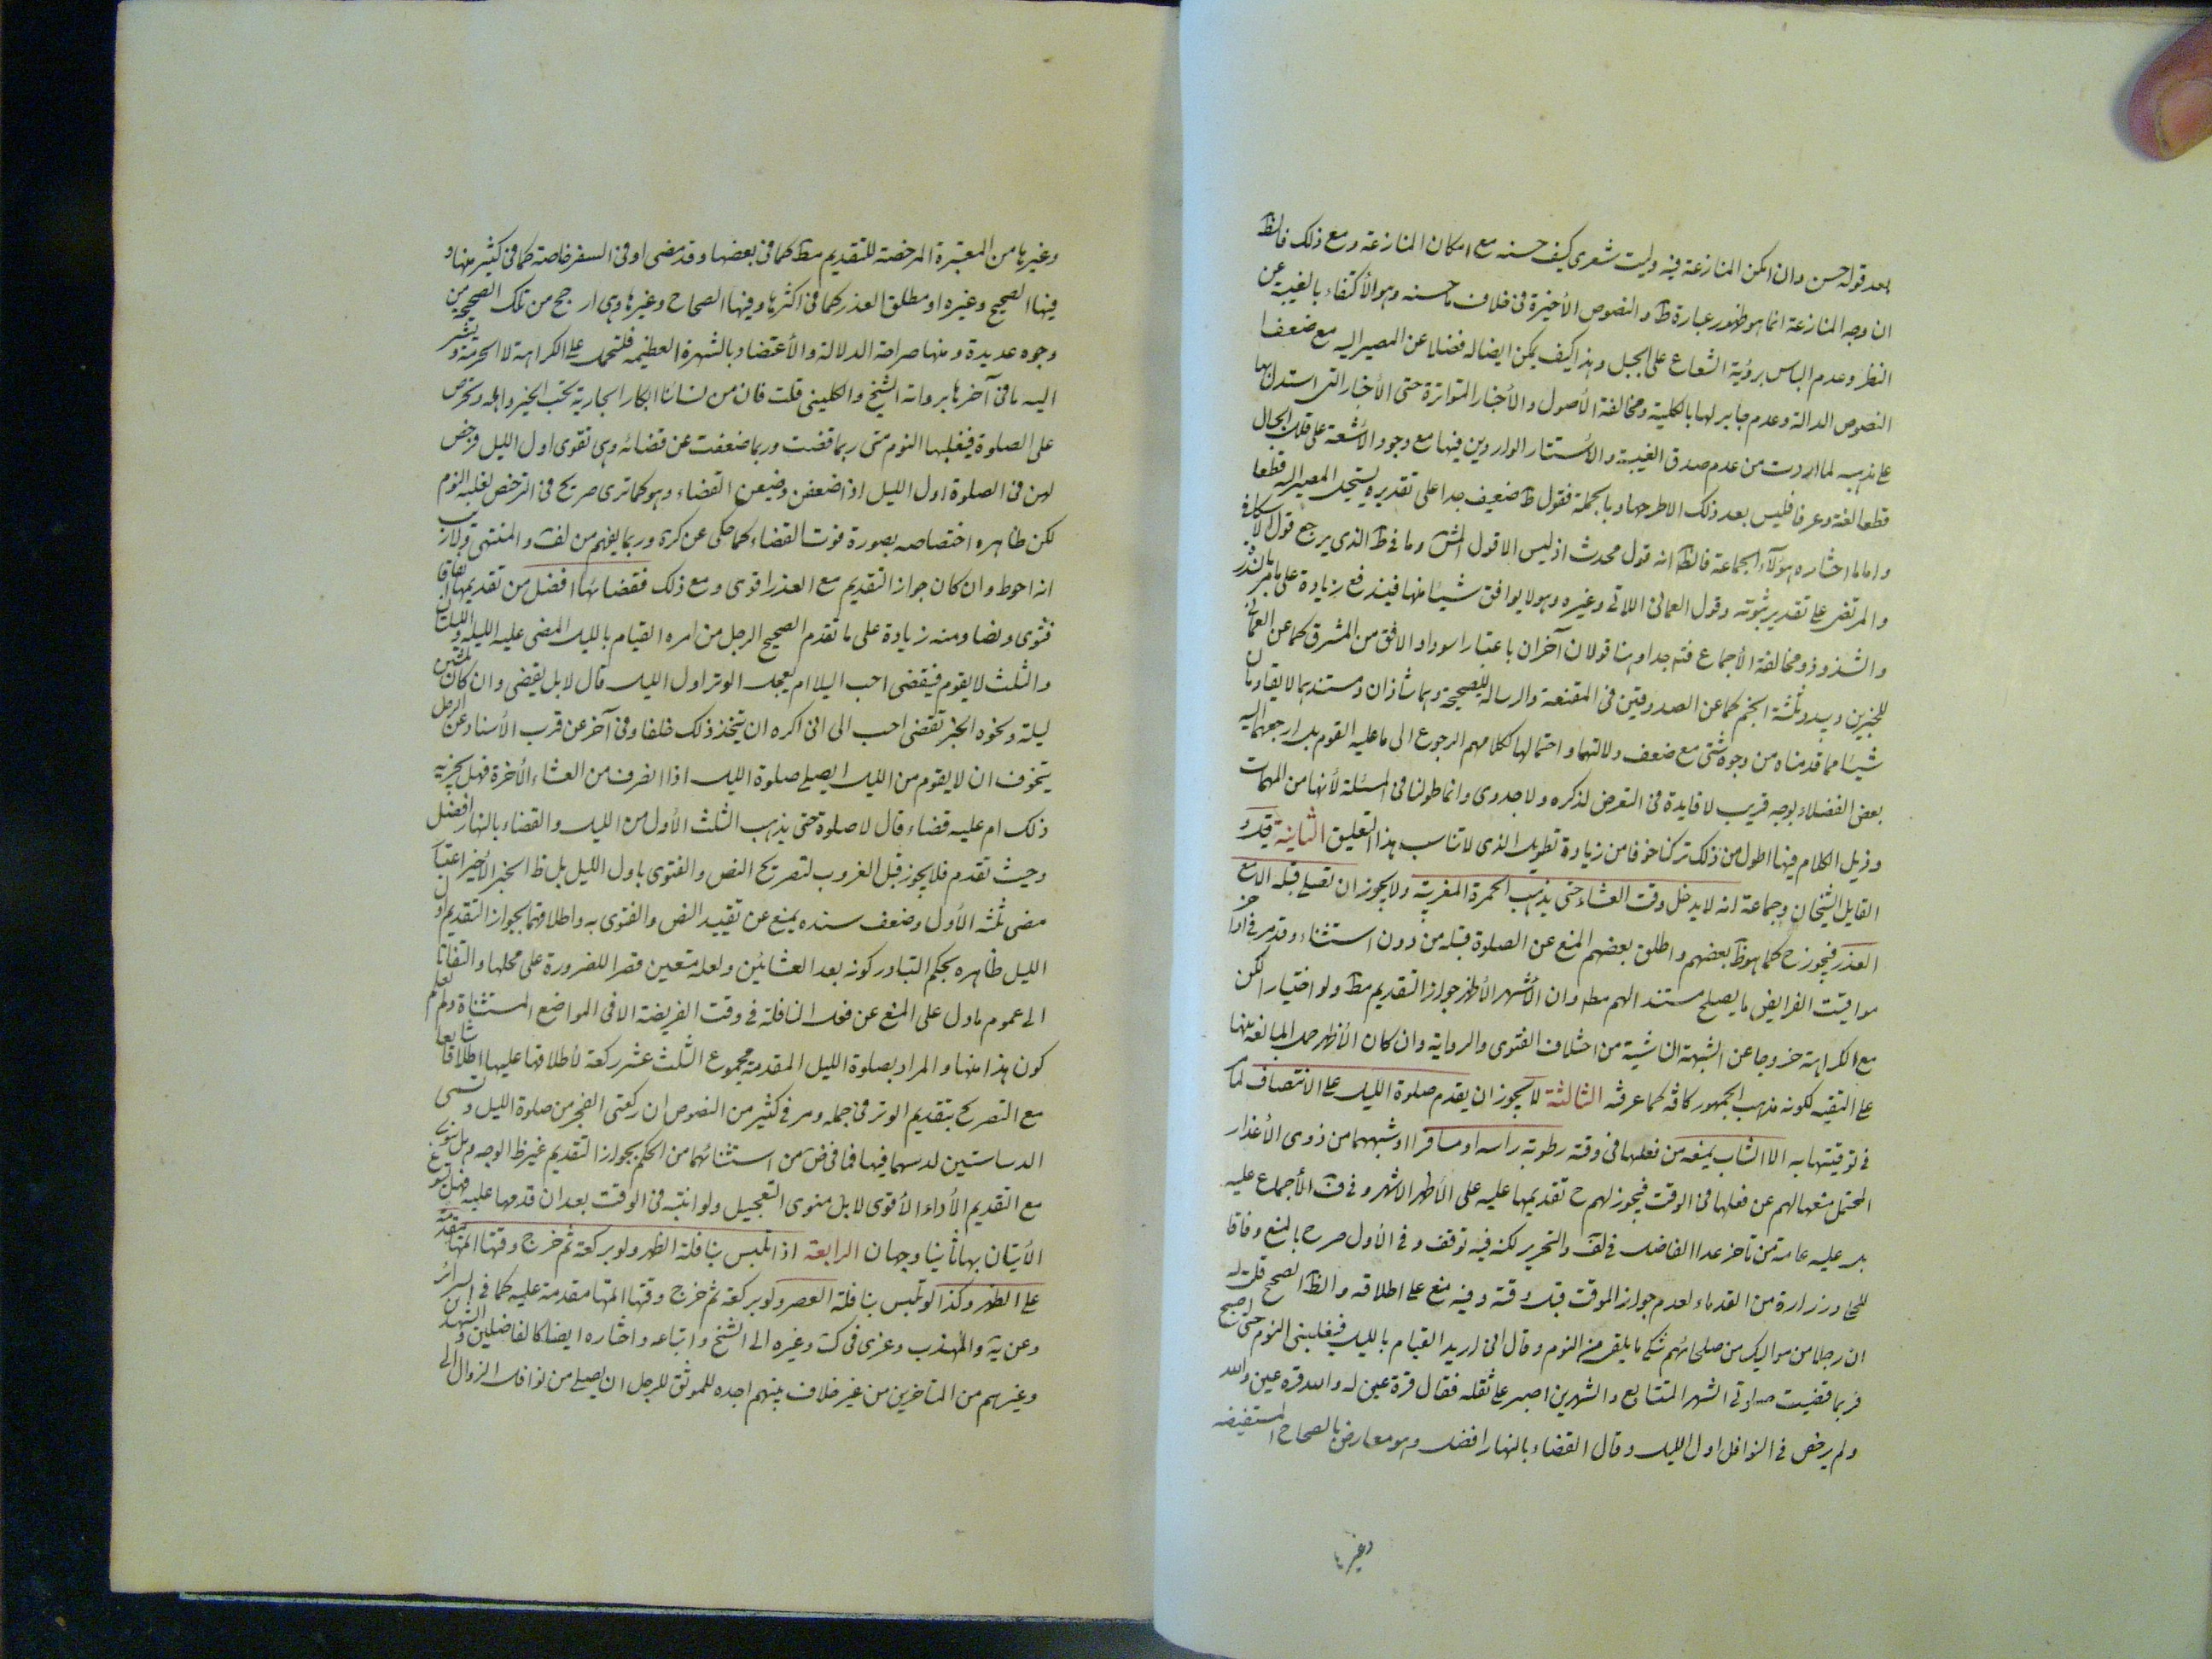 بعد قوله حسن وان امكن المنازعة فيه وليت شعرى كيف حسنه مع امكان المنازعة ومع ذلك فالظ
ان وجه المنازعة انما هو ظهور عبارة ط والنصوص الأخيرة فى خلاف ما حسنه وهو الأكتفاء بالغيبة عن
النظر وعدم الباس برؤية الشعاع على الجبل وهذا كيف يمكن ايضا له فضلا عن المصير اليه مع ضعف
النصوص الدالة وعدم جابر لها بالكلية ومخالفة الأصول والأخبار المتواترة حتى الأخبار التى استدل بها
على مذهبه لما اردت من عدم صدق الغيبة والأستتار الواردين فيها مع وجود الأشعة على قلل الجبال
قطعا لغة وعرفا فليس بعد ذلك الا طرحها وبالجملة فقول ط ضعيف جدا على تقديره يستحيل المصير اليه قطعا
واما ما اختاره هؤلاء الجماعة فالظ انه قول محدث اذ ليس الا قول المش وما فى ط الذى يرجع قول الاسكافى
والمرتضى على تقدير ثبوته وقول العمانى الاتى وغيره وهو لا يوافق شيئا منها فيندفع زيادة على ما مر بالندور
والشذوذ ومخالفة الأجماع فتم جدا وهنا قولان آخران باعتبار اسوداد الافق من المشرق كما عن العمانى
للخبرين وببدو ثلثة انجم كما عن الصدوقين فى المقنعة والرسالة للصحيحة وهما شاذان ومستندهما لا يقاومان
شيئا مما قدمناه من وجوه شتى مع ضعف دلالتهما واحتمالها ككلامهم الرجوع الى ما عليه القوم بل ارجعهما اليه
بعض الفضلاء بوجه قريب لا فايدة فى التعرض لذكره ولا جدوى وانما طولنا فى المسئلة لأنها من المهمات
وذيل الكلام فيها اطول من ذلك تركنا خوفا من زيادة تطويل الذى لا تناسب هذا التعليق الثانية قيل و
القايل الشيخان وجماعة انه لا يدخل وقت العشاء حتى يذهب الحمرة المغربية ولا يجوز ان تصلى قبله الا مع
العذر فيجوز ح كما هو ظ بعضهم واطلق بعضهم المنع عن الصلوة قبله من دون استثناء وقد مر فى اواخر
مواقيت الفرايض ما يصلح مستندا لهم مط وان الأشهر الأظهر جواز التقديم مط ولو اختيارا لكن
مع الكراهة خروجا عن الشبهة الناشئة من اختلاف الفتوى والرواية وان كان الأظهر حمل المانعة منها
على التقيه لكونه مذهب الجمهور كافة كما عرفته الثالثة لا يجوز ان يقدم صلوة الليل على الانتصاف لما مر
فى توقيتها به الا الشاب يمنعه من فعلها فى وقته رطوبة راسه او مسافرا او شبههما من ذوى الأعذار
المحتمل منعها لهم عن فعلها فى الوقت فيجوز لهم ح تقديمها عليه على الأظهر الاشهر وفى ف الأجماع عليه
بل عليه عامة من تاخر عدا الفاضل فى لف والتحرير لكنه فيه توقف وفى الأول صرح بالمنع وفاقا
للمحكى ورزارة من القدماء لعدم جواز الموقت قبل وقته وفيه منع على اطلاقه والظ الصحيح قلت له
ان رجلا من مواليك من صلحائهم شكى ما يلقى من النوم وقال انى اريد القيام بالليل فيغلبنى النوم حتى اصبح
فربما قضيت صلوتى الشهر المتتابع والشهرين اصبر على ثقله فقال قرة عين له والله قرة عين والله
ولم يرخص فى النوافل اول الليل وقال القضاء بالنهار افضل وهو معارض بالصحاح المستفيضه
وغيرها
وغيرها من المعتبرة المرخصة للتقديم مط كما فى بعضها وقد مضى او فى السفر خاصة كما فى كثير منها و
فيها الصحيح وغيره او مطلق العذر كما فى اكثرها وفيها الصحاح وغيرها وهى ارجح من تلك الصحيحة من
وجوه عديدة ومنها صراحة الدلالة والأعتضاد بالشهرة العظيمه فلتحمل على الكراهة لا الحرمة ويشير
اليه ما فى آخرها برواية الشيخ والكلينى قلت فان من نسائنا ابكار الجارية تحب الخير واهله وتحرص
على الصلوة فيغلبها النوم حتى ربما قضت وربما ضعفت عن قضائه وهى تقوى اول الليل فرخص
لهن فى الصلوة اول الليل اذا ضعفن وضيعن القضاء وهو كما ترى صريح فى الترخص لغلبة النوم
لكن ظاهره اختصاصه بصورة فوت القضاء كما حكى عن كرة وربما يفهم من لف والمنتهى ولا ريب
انه احوط وان كان جواز التقديم مع العذر اقوى ومع ذلك فقضائها افضل من تقديمها اتفاقا
فتوى ونصا ومنه زيادة على ما تقدم الصحيح الرجل من امره القيام بالليل المضى عليه الليلة والليلتان
والثلث لا يقوم فيقضى احب اليك ام يعجل الوتر اول الليل قال لا بل يقضى وان كان ثلثين
ليلة ونحوه الخبر تقضى احب الى انى اكره ان يتخذ ذلك خلقا وفى آخر عن قرب الأسناد عن الرجل
يتخوف ان لا يقوم من الليل ايصلى صلوة الليل اذا انصرف من العشاء الأخرة فهل يجزيه
ذلك ام عليه قضاء قال لا صلوة حتى يذهب الثلث الأول من الليل والقضاء بالنهار افضل
وحيث تقدم فلا يجوز قبل الغروب لتصريح النص والفتوى باول الليل بل ظ الخبر الأخير اعتبار
مضى ثلثه الأول وضعف سنده يمنع عن تقييد النص والفتوى به واطلاقهما بجواز التقديم اول
الليل ظاهره بحكم التبادر كونه بعد العشائين ولعله متعين قصرا للضرورة على محلها والتفاتا
الى عموم ما دل على المنع عن فعل النافلة فى وقت الفريضة الا فى المواضع المستثناة ولم نعلم
كون هذا منها والمراد بصلوة الليل المقدمة مجموع الثلث عشر ركعة لأطلاقها عليها اطلاقا شايعا
مع التصريح بتقديم الوتر فى جمله ومر فى كثير من النصوص ان ركعتى الفجر من صلوة الليل وتسمى
الدساستين لدسهما فيها فما فى ض من استثنائهما من الحكم بجواز التقديم غير ظ الوجه وهل ينوى
مع التقديم الأداء الأقوى لا بل منوى التعجيل ولو انتبه فى الوقت بعد ان قدمها عليه فهل يشرع
الأتيان بها ثانيا وجهان الرابعة اذا تلبس بنافلة الظهر ولو بركعة ثم خرج وقتها اتمها مقدمة
على الظهر وكذا لو تلبس بنافلة العصر ولو بركعة ثم خرج وقتها اتمها مقدمة عليه كما فى السرائر
وعن ية والمهذب وعزى فى ك وغيره الى الشيخ واتباعه واختاره ايضا كالفاضلين والشهيدان
وغيرهم من المتاخرين من غير خلاف بينهم اجده للموثق للرجل ان يصلى من نوافل الزوال الى